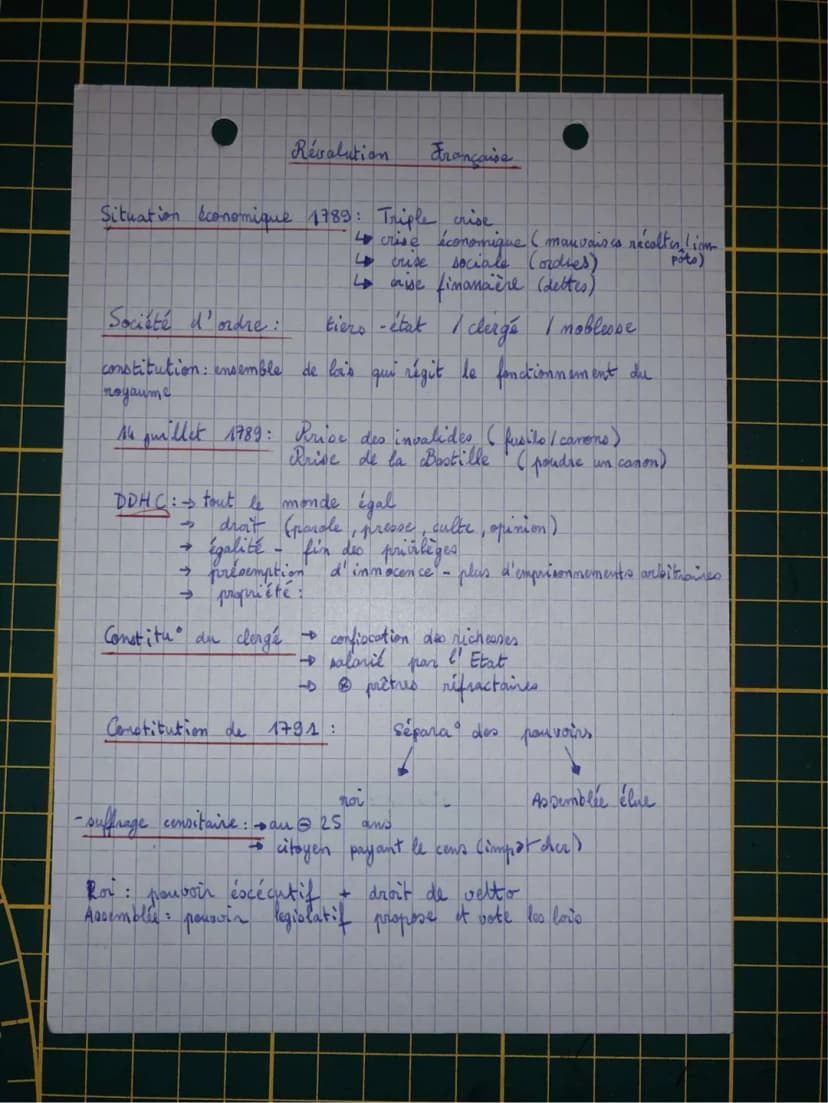 Révolution Française
Situation économique 1789 : Triple crise
↳ crise économique ( mauvaises récoltes / im-
pôts)
↳ crise sociale (ordres)
↳ crise financière (dettes)
Société d'ordre : tiers-état / clergé / noblesse
constitution : ensemble de lois qui régit le fonctionnement du
royaume
14 juillet 1789 : Prise des invalides ( fusils / canons)
Prise de la Bastille ( poudre un canon)
DDHC : → tout le monde égal
→ droit (parole, presse, culte, opinion)
→ égalité - fin des privilèges
→ présemption d'innocence - plus d'emprisonnements arbitraires
→ propriété :
Constitu° du clergé → confiscation des richesses
→ salarié par l'Etat
→ ⊗ prêtres réfractaires
Constitution de 1791 : Sépara° des pouvoirs
roi - Assemblée élue
- suffrage censitaire : → au ⊖ 25 ans
→ citoyen payant le cens (impôt cher)
Roi : pouvoir éxécutif + droit de vetto
Assemblée = pouvoir législatif propose et vote les lois